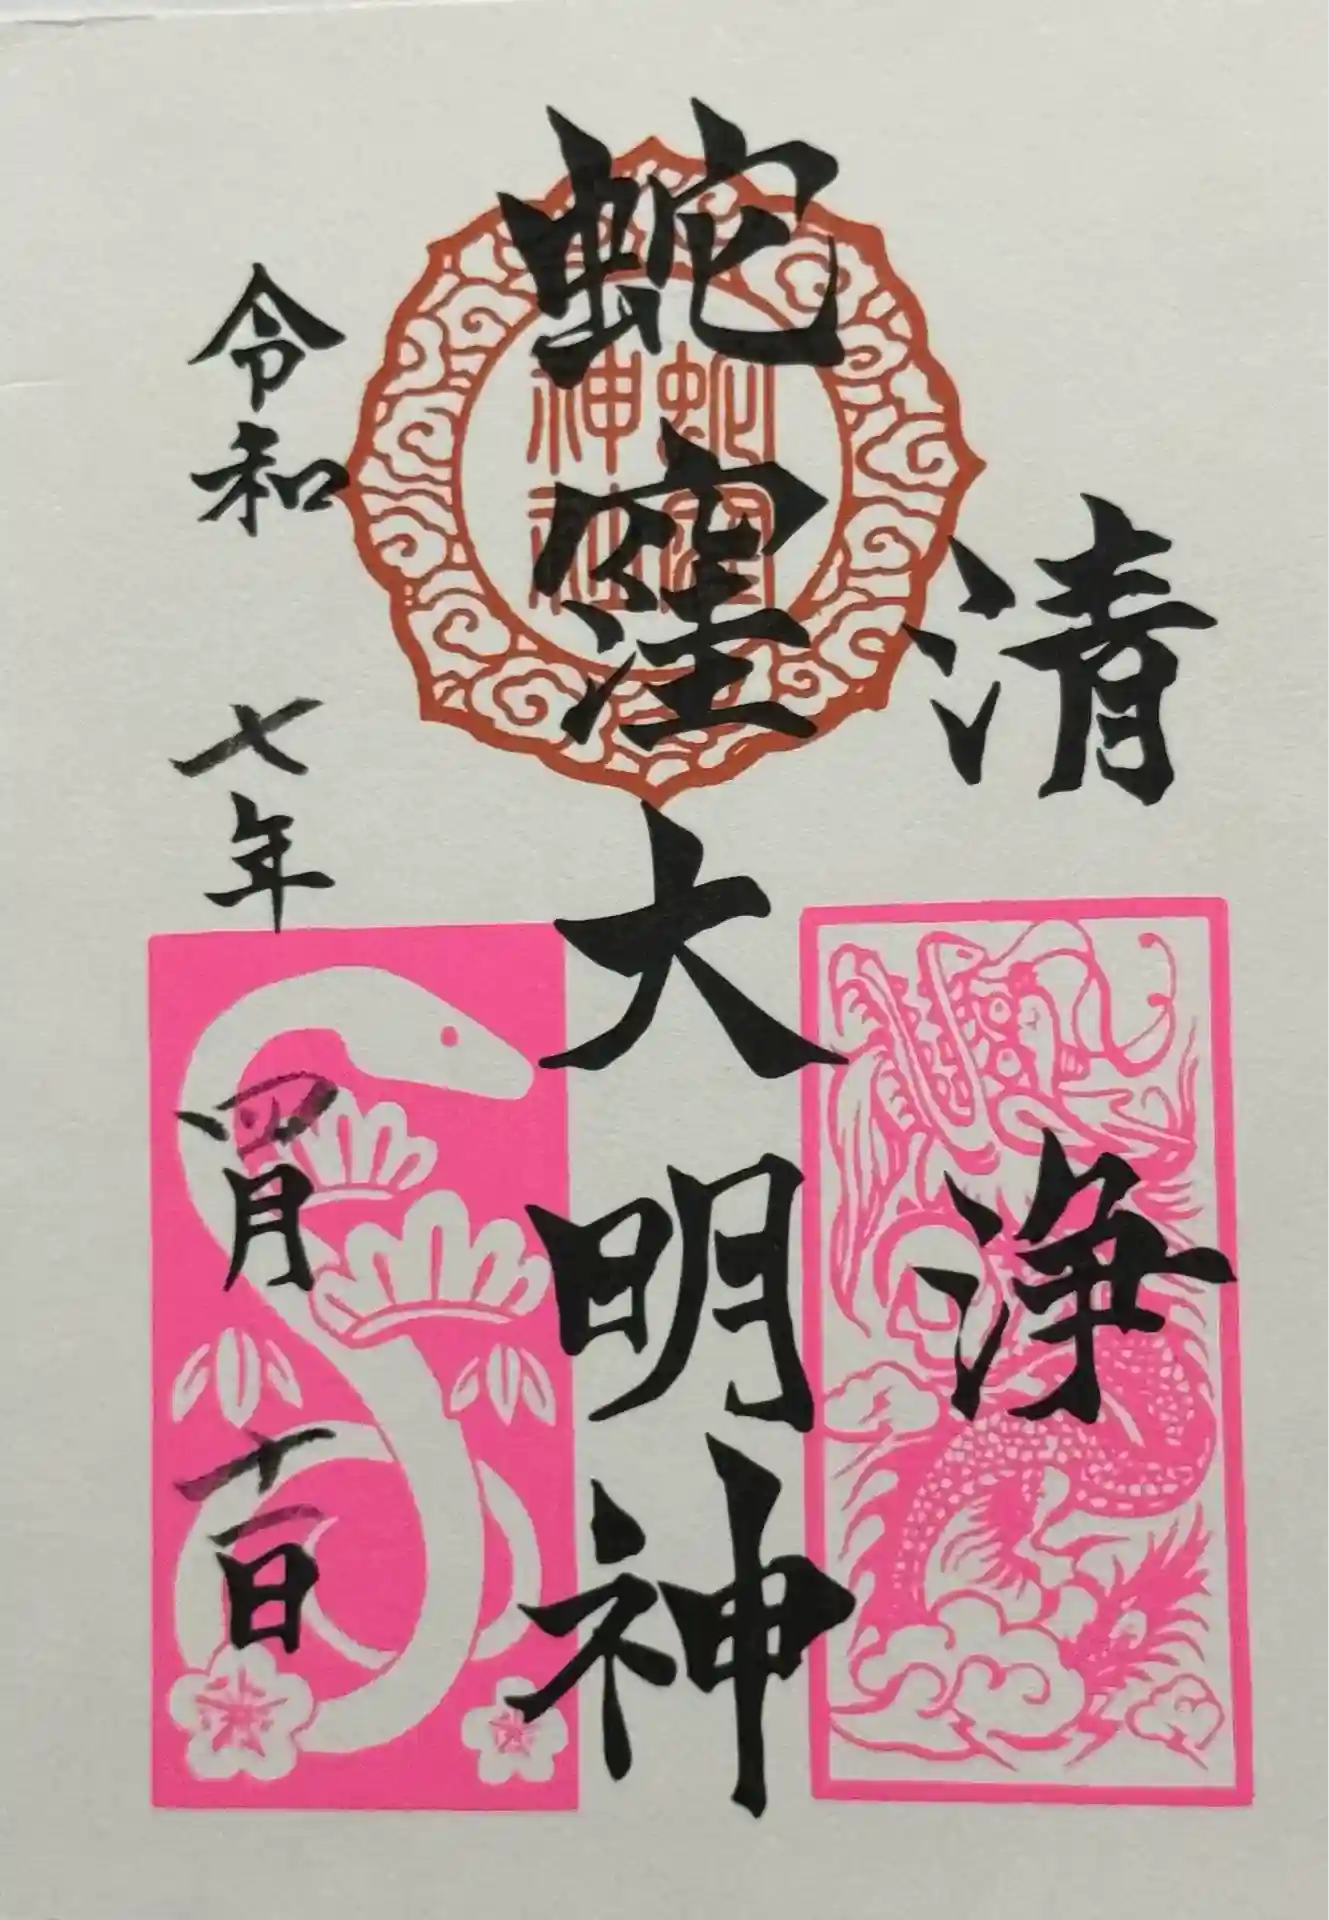 清浄
蛇窪大明神
蛇窪
神社
令和七年四月十一日